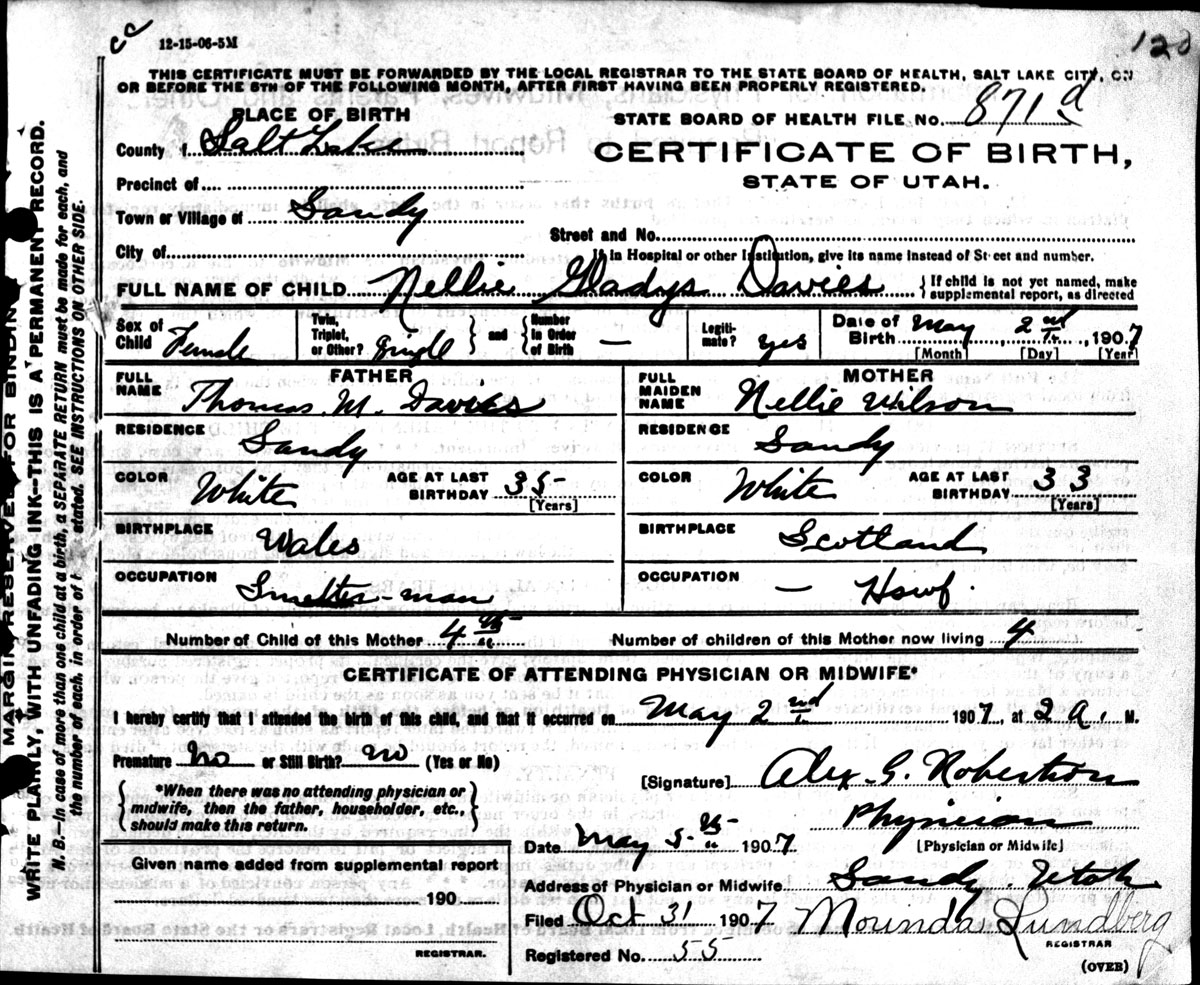 cc 12-15-06-5M
120
THIS CERTIFICATE MUST BE FORWARDED BY THE LOCAL REGISTRAR TO THE STATE BOARD OF HEALTH, SALT LAKE CITY, ON
OR BEFORE THE 5TH OF THE FOLLOWING MONTH, AFTER FIRST HAVING BEEN PROPERLY REGISTERED.
PLACE OF BIRTH
STATE BOARD OF HEALTH FILE No. 871 d
County f Salt Lake
CERTIFICATE OF BIRTH,
Precinct of
STATE OF UTAH.
Town or Village of Sandy
Street and No.
City of
If in Hospital or other Institution, give its name instead of St eet and number.
FULL NAME OF CHILD Nellie Gladys Davies { If child is not yet named, make supplemental report, as directed
Sex of Child Female
Twin, Triplet, or Other? Single } and { Number in Order of Birth —
Legiti-mate? yes
Date of Birth May 2nd, 1907
[Month] [Day] [Year]
FATHER
FULL NAME Thomas M. Davies
RESIDENCE Sandy
COLOR White AGE AT LAST BIRTHDAY 35
[Years]
BIRTHPLACE Wales
OCCUPATION Smelter-man
MOTHER
FULL MAIDEN NAME Nellie Wilson
RESIDENCE Sandy
COLOR White AGE AT LAST BIRTHDAY 33
[Years]
BIRTHPLACE Scotland
OCCUPATION — Hswf.
Number of Child of this Mother 4th Number of children of this Mother now living 4
CERTIFICATE OF ATTENDING PHYSICIAN OR MIDWIFE*
I hereby certify that I attended the birth of this child, and that it occurred on May 2nd 1907, at 2 A. M.
Premature No or Still Birth? no (Yes or No)
{ *When there was no attending physician or
midwife, then the father, householder, etc.,
should make this return. }
[Signature] Alex. G. Robertson
Physician
[Physician or Midwife]
Date May 5th 1907
Given name added from supplemental report
190
REGISTRAR.
Address of Physician or Midwife Sandy. Utah
Filed Oct 31 1907 Mounda Lundberg
REGISTRAR
Registered No. 55
(OVER)
MARGIN RESERVED FOR BINDING
WRITE PLAINLY, WITH UNFADING INK—THIS IS A PERMANENT RECORD.
N. B.—In case of more than one child at a birth, a SEPARATE RETURN must be made for each, and
the number of each, in order of stated. SEE INSTRUCTIONS ON OTHER SIDE.